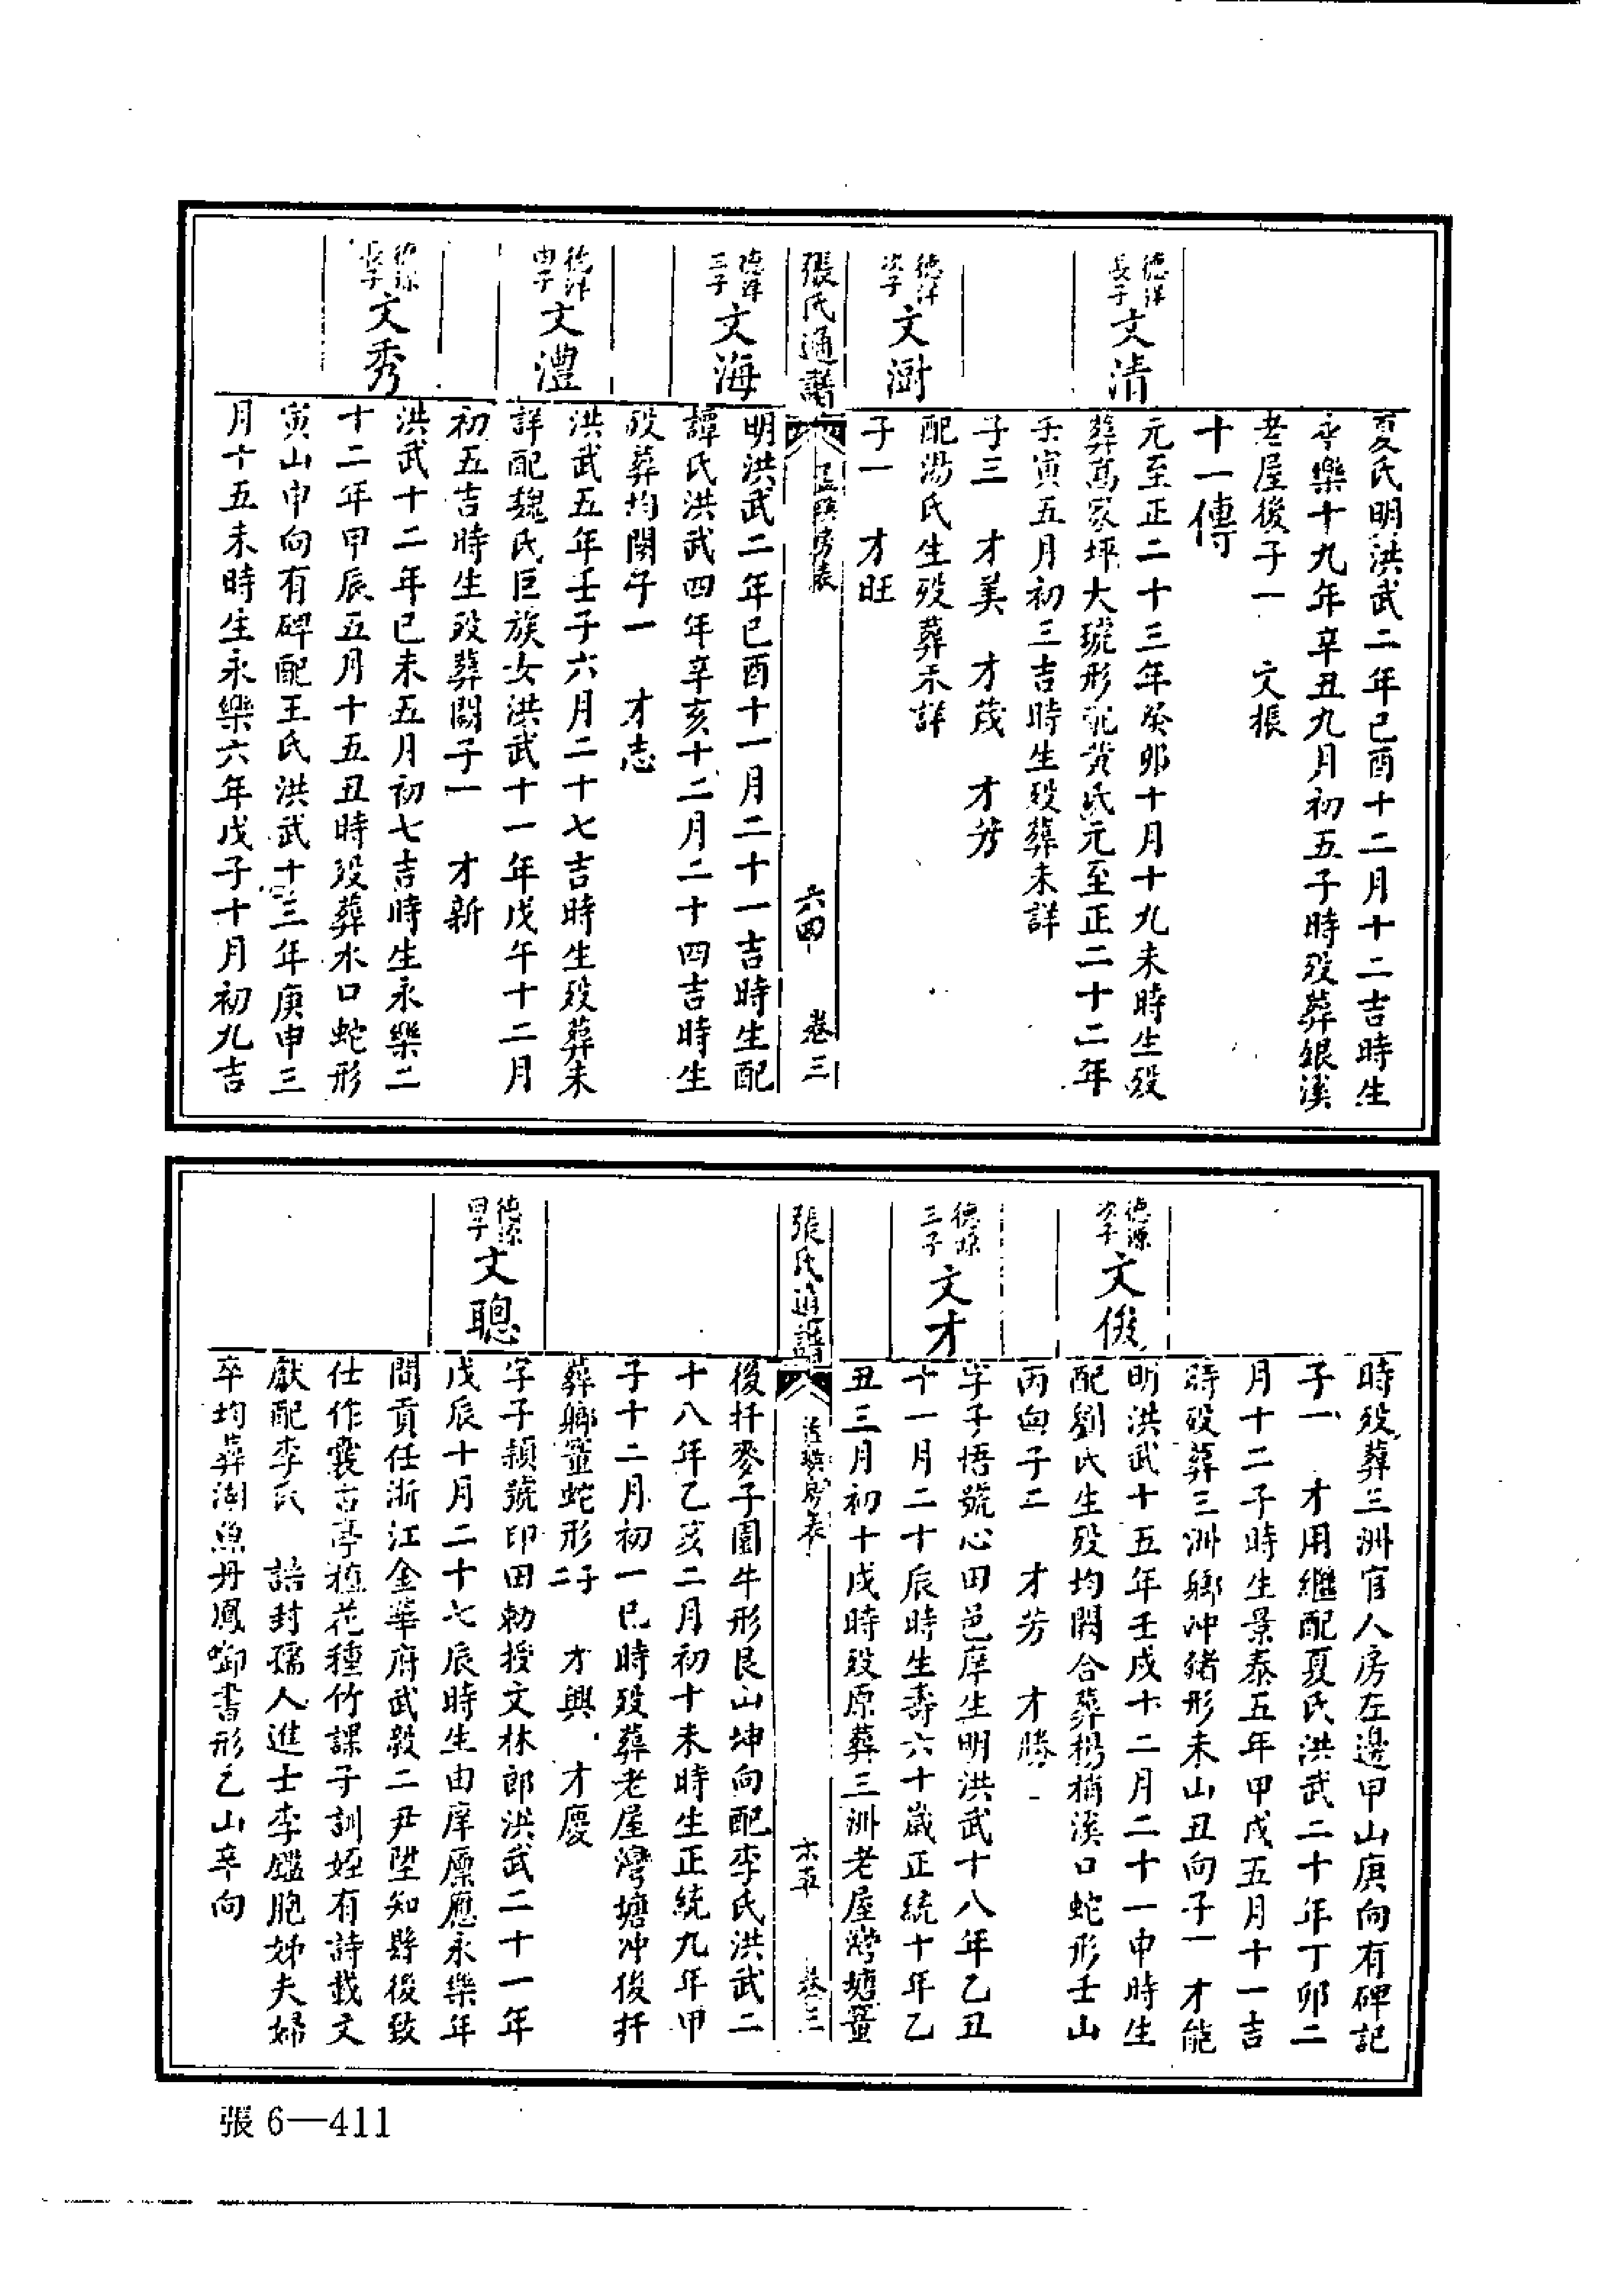 夏氏明洪武二年己酉十二月十二吉時生
永樂十九年辛丑九月初五子時歿葬銀溪
老屋後子一 文振
十一傳
德洋長子文清
元至正二十三年癸卯十月十九未時生歿
葬萬家坪大形配黃氏元至正二十二年
壬寅五月初三吉時生歿葬未詳
子三 才美 才茂 才芳
德洋次子文澍
配湯氏生歿葬未詳
子一 才旺
張氏通譜 房表 卷三
德洋三子文海
明洪武二年己酉十一月二十一吉時生配
譚氏洪武四年辛亥十二月二十四吉時生
歿葬均闕子一 才志
德洋四子文澧
洪武五年壬子六月二十七吉時生歿葬未
詳配魏氏巨族女洪武十一年戊午十二月
初五吉時生歿葬闕子一 才新
德源長子文秀
洪武十二年己未五月初七吉時生永樂二
十二年甲辰五月十五丑時歿葬水口蛇形
寅山申向有碑配王氏洪武十三年庚申三
月十五未時生永樂六年戊子十月初九吉
時歿葬三洲官人房左邊甲山庚向有碑記
子一 才用繼配夏氏洪武二十年丁卯二
月十二子時生景泰五年甲戌五月十一吉
時歿葬三洲鄉冲豬形未山丑向子一才能
德源次子文俊
明洪武十五年壬戌十二月二十一申時生
配劉氏生歿均闕合葬楊梢溪口蛇形壬山
丙向子二 才芳 才勝
德源三子文才
字子悟號心田邑庠生明洪武十八年乙丑
十一月二十辰時生壽六十歲正統十年乙
丑三月初十戌時歿原葬三洲老屋灣塘
張氏通譜 房表 卷三
後扦麥子園牛形艮山坤向配李氏洪武二
十八年乙亥二月初十未時生正統九年甲
子十二月初一巳時歿葬老屋灣塘冲後扦
葬鄉蛇形子二 才興 才慶
德源四子文聰
字子穎號印田勅授文林郎洪武二十一年
戊辰十月二十七辰時生由庠廩應永樂年
間貢任浙江金華府武毅二尹陞知縣後致
仕作襄古亭植花種竹課子訓姪有詩載文
獻配李氏 誥封孺人進士李鑑胞姊夫婦
卒均葬湖魚丹鳳啣書形乙山辛向
張6—411